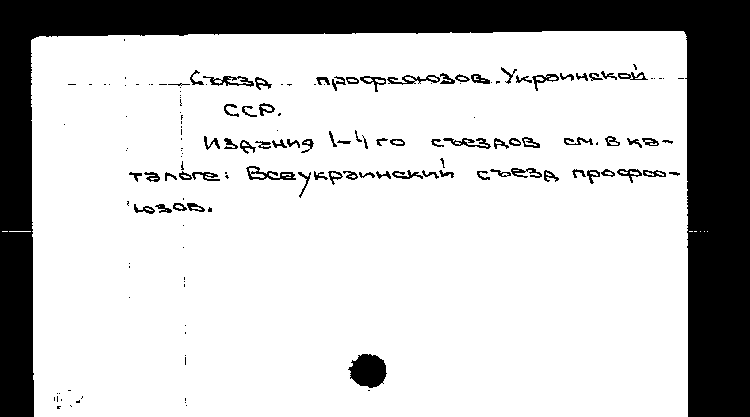 Съезд профсоюзов Украинской
ССР.
Издания 1-4го съездов см. в ка-
талоге: Всеукраинский съезд профсо-
юзов.